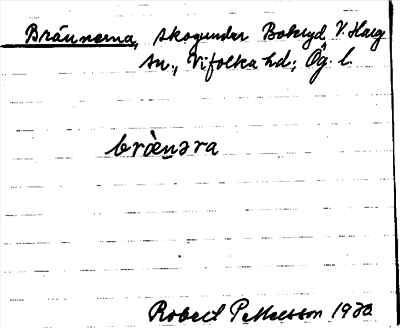 Brännerna, skog under Bokryd V. Harg
sn., Vifolka hd; Ög. l.
bræ̀nəra
Robert Pettersson 1930